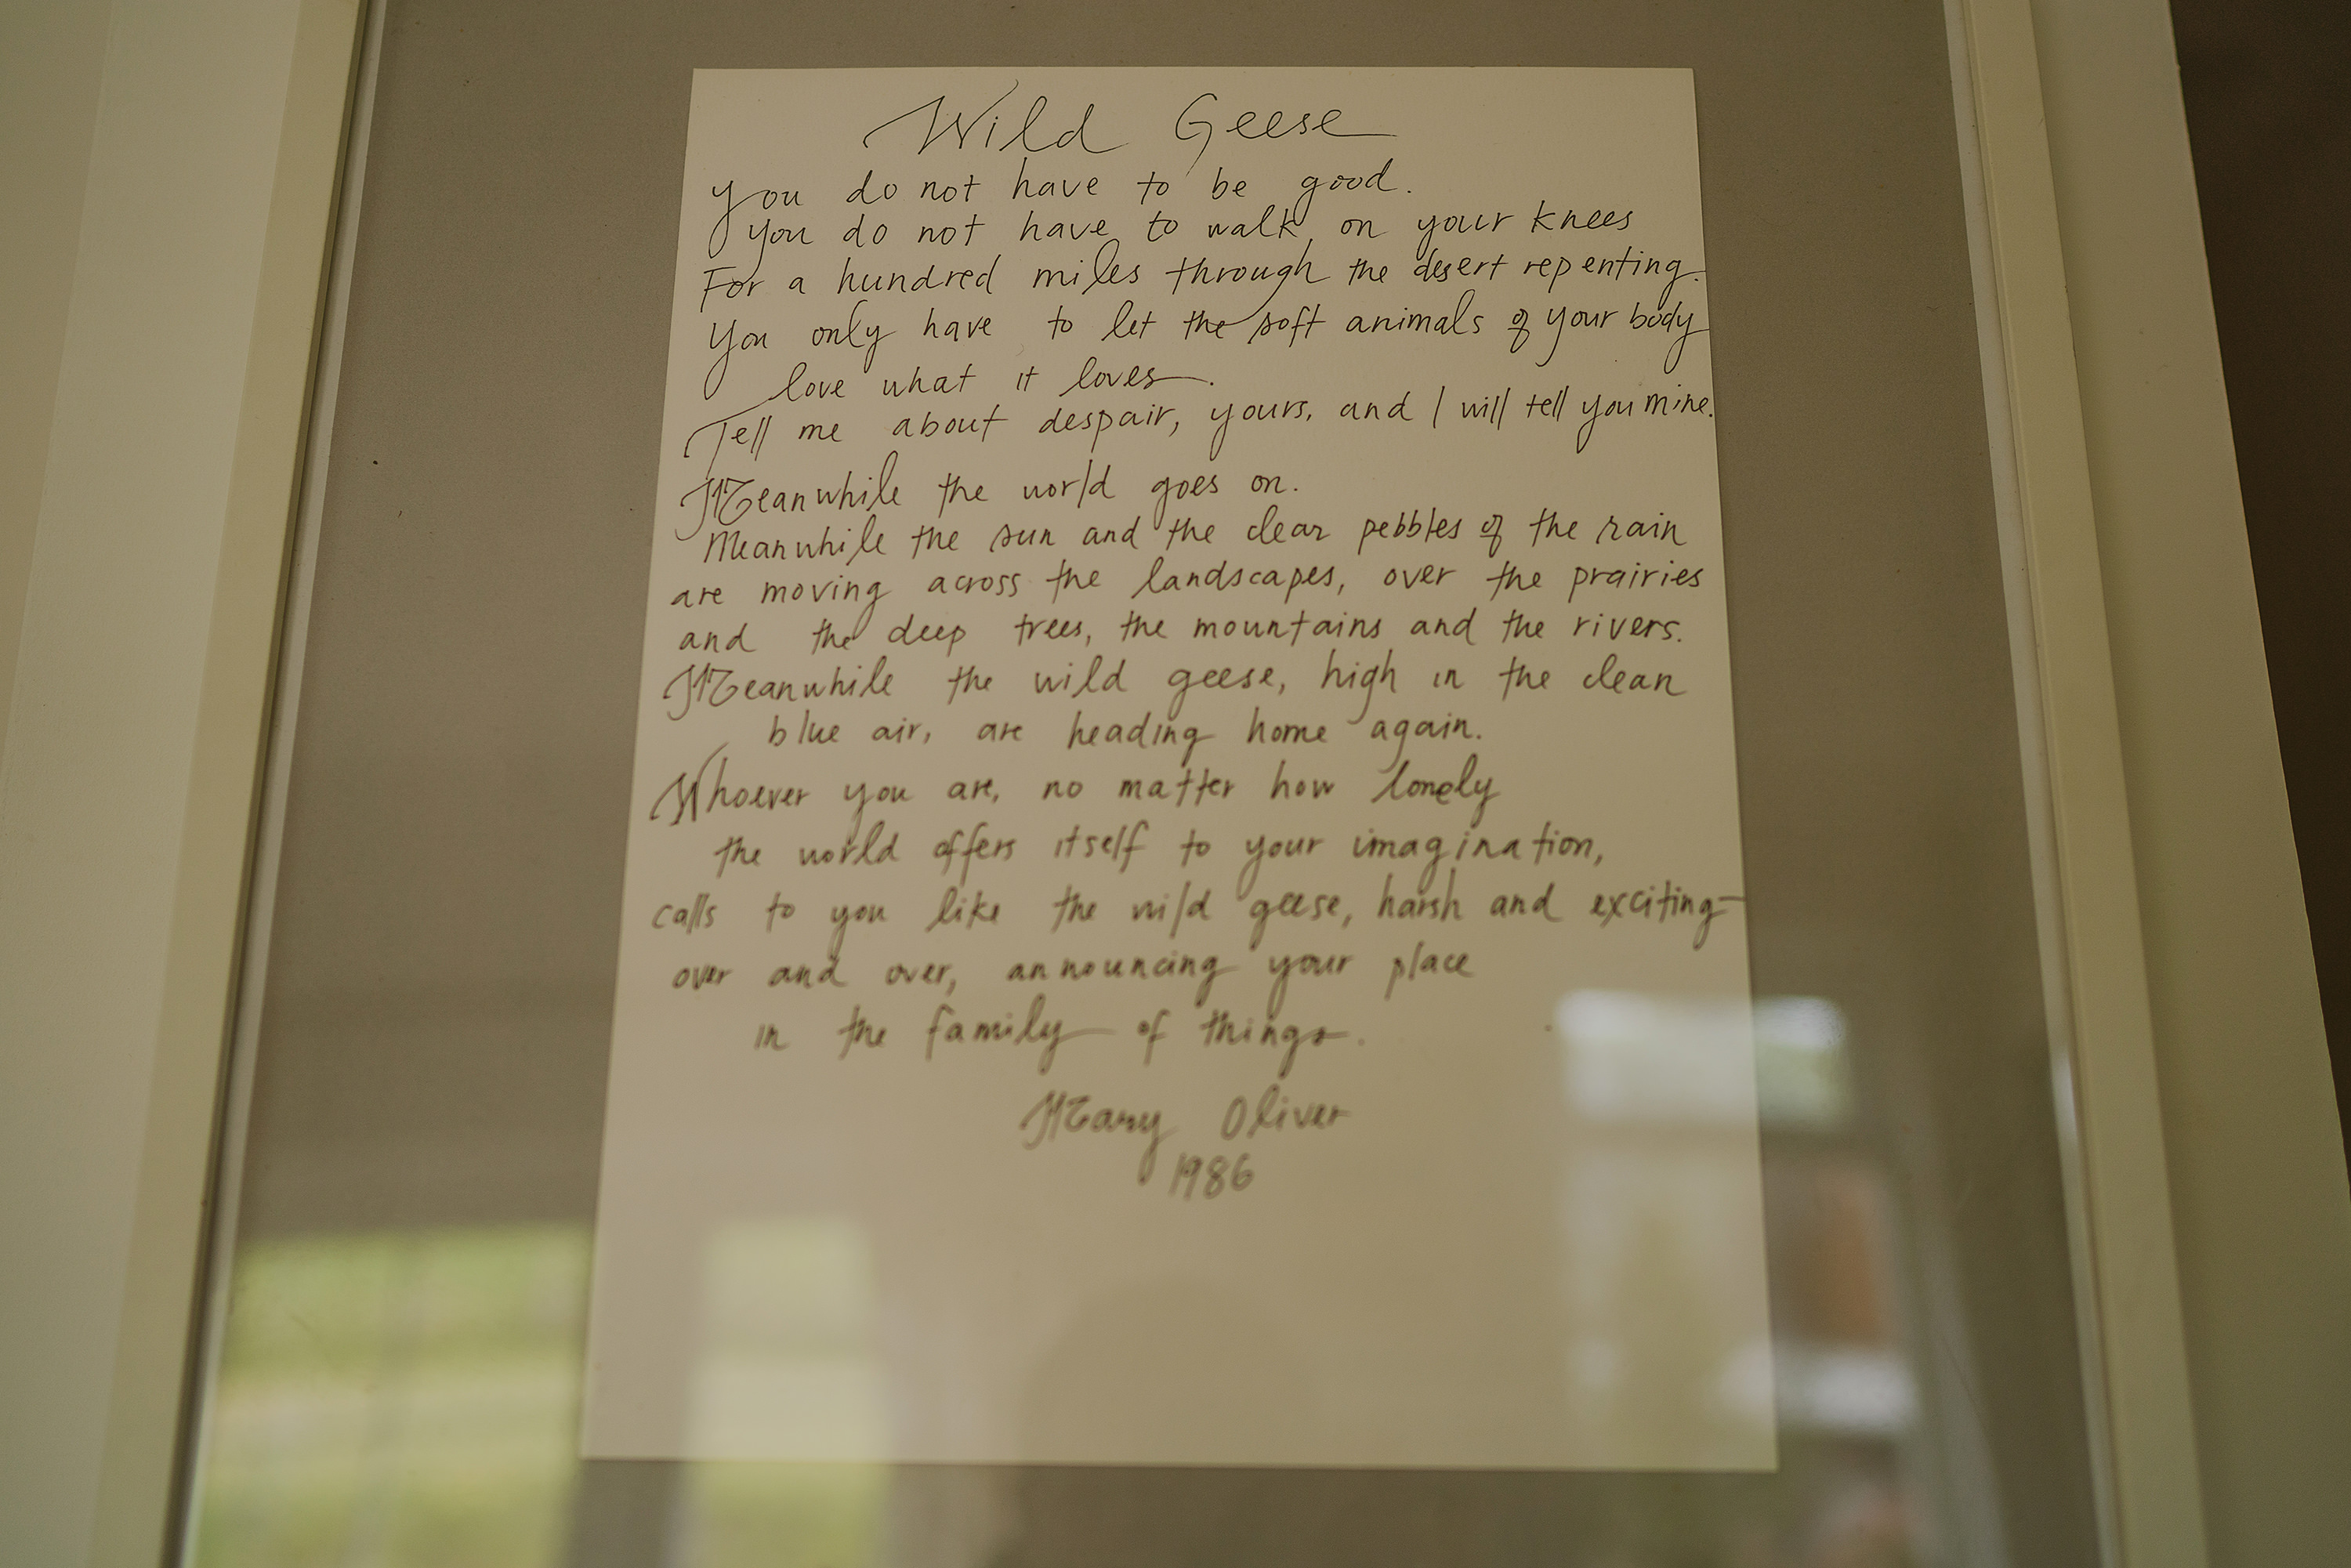 Wild Geese
You do not have to be good.
You do not have to walk on your knees
For a hundred miles through the desert repenting.
You only have to let the soft animals of your body
love what it loves.
Tell me about despair, yours, and I will tell you mine.
Meanwhile the world goes on.
Meanwhile the sun and the clear pebbles of the rain
are moving across the landscapes, over the prairies
and the deep trees, the mountains and the rivers.
Meanwhile the wild geese, high in the clean
blue air, are heading home again.
Whoever you are, no matter how lonely
the world offers itself to your imagination,
calls to you like the wild geese, harsh and exciting—
over and over, announcing your place
in the family of things.
Mary Oliver
1986